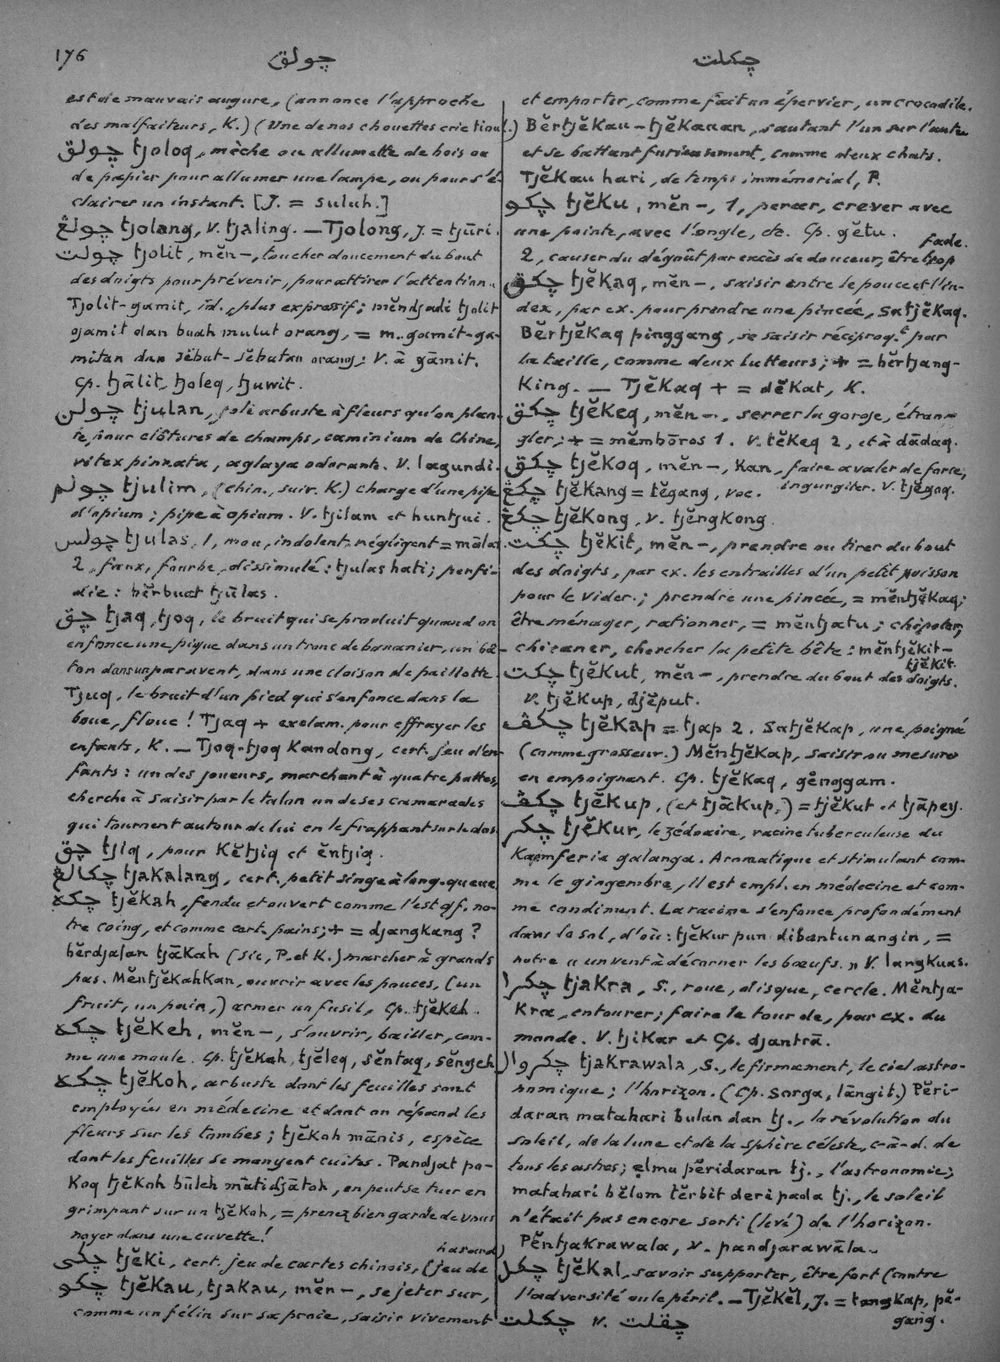 176
چولق
چكلت
est de mauvais augure, (annonce l'approche
des malfaiteurs, K.) (Une de nos chouettes crie tiou!.)
چولق tjoloq, mèche ou allumette de bois ou
de papier pour allumer une lampe, ou pour s'é-
clairer un instant. [J. = suluh.]
چولڠ tjolang, V. tjaling. — Tjolong, J. = tjūri.
چولت tjolit, mĕn-, toucher doucement du bout
des doigts pour prévenir, pour attirer l'attention.
Tjolit-gamit, id., plus expressif; mĕndjadi tjolit
gamit dan buah mulut orang, = m. gamit-ga-
mitan dan sĕbut-sĕbutan orang; V. à gāmit.
Cp. tjālit, tjoleq, tjuwit.
چولن tjulan, joli arbuste à fleurs qu'on plan-
te, pour clôtures de champs, caminium de Chine,
vitex pinnata, aglaya odorante. V. lagundi.
چولم tjulim, (chin., suiv. K.) charge d'une pipe
d'opium; pipe à opium. V. tjilam et huntjui.
چولس tjulas, 1, mou, indolent, négligent = mālas
2, faux, fourbe, dissimulé: tjulas hati; perfi-
die: bĕrbuat tjūlas.
چق tjaq, tjoq, le bruit qui se produit quand on
enfonce une pique dans un tronc de bananier, un bâ-
ton dans un paravent, dans une cloison de paillotte.
Tjuq, le bruit d'un pied qui s'enfonce dans la
boue, flouc! Tjaq + exclam. pour effrayer les
enfants, K. — Tjoq-tjoq Kandang, cert. jeu d'en-
fants: un des joueurs, marchant à quatre pattes,
cherche à saisir par le talon un de ses camarades
qui tournent autour de lui en le frappant sur le dos.
چق tjiq, pour Kĕtjiq et ĕntjiq.
چكالڠ tjakalang, cert. petit singe à long. queue
چكه tjĕkah, fendu et ouvert comme l'est qf. no-
tre coing, et comme cert. pains; + = djangkang?
bĕrdjalan tjākah (sic, P. et K.) marcher à grands
pas. Mĕntjĕkahkan, ouvrir avec les pouces, (un
fruit, un pain,) armer un fusil. Cp. tjĕkeh.
چكه tjĕkeh, mĕn-, s'ouvrir, bailler, com-
me une moule. Cp. tjĕkah, tjĕleq, sĕntaq, sĕngeh
چكه tjĕkoh, arbuste dont les feuilles sont
employées en médecine et dont on répand les
fleurs sur les tombes; tjĕkoh mānis, espèce
dont les feuilles se mangent cuites. Pandjat po-
Koq tjĕkoh būleh māti djātoh, on peut se tuer en
grimpant sur un tjĕkoh, = prenez bien garde de vous
noyer dans une cuvette!
چكي tjĕki, cert. jeu de cartes chinois, (jeu de hasard)
چكو tjĕkau, tjakau, mĕn-, se jeter sur,
comme un félin sur sa proie, saisir vivement
et emporter, comme fait un épervier, un crocodile.
Bĕrtjĕkau-tjĕkauan, sautant l'un sur l'autre
et se battant furieusement, comme deux chats.
Tjĕkau hari, de temps immémorial, P.
چكو tjĕku, mĕn-, 1, percer, crever avec
une pointe, avec l'ongle, etc. Cp. gĕtu.
2, causer du dégoût par excès de douceur, être trop fade.
چكق tjĕkaq, mĕn-, saisir entre le pouce et l'in-
dex, par ex. pour prendre une pincée, satjĕkaq.
Bĕrtjĕkaq pinggang, se saisir réciproqᵗ par
la taille, comme deux lutteurs; + = bĕrtjang-
king. — Tjĕkaq + = dĕkat, K.
چكق tjĕkeq, mĕn-, serrer la gorge, étran-
gler; + = mĕmbōros 1. V. tĕkeq 2, et à dādaq.
چكق tjĕkoq, mĕn-, kan, faire avaler de force,
ingurgiter. V. tjĕgoq.
چكڠ tjĕkang = tĕgang, voc.
چكڠ tjĕkong, V. tjĕngkong.
چكت tjĕkit, mĕn-, prendre ou tirer du bout
des doigts, par ex. les entrailles d'un petit poisson
pour le vider; prendre une pincée, = mĕntjĕkaq;
être ménager, rationner, = mĕntjatu; chipoter,
chicaner, chercher la petite bête: mĕntjĕkit-
tjĕkit.
چكت tjĕkut, mĕn-, prendre du bout des doigts.
V. tjĕkup, djĕput.
چكڤ tjĕkap = tjap 2. Satjĕkap, une poignée
(comme grosseur.) Mĕntjĕkap, saisir ou mesurer
en empoignant. Cp. tjĕkaq, gĕnggam.
چكڤ tjĕkup, (et tjākup,) = tjĕkut et tjāpey.
چكر tjĕkur, le zédoaire, racine tuberculeuse du
Kaemferia galanga. Aromatique et stimulant com-
me le gingembre, il est empl. en médecine et com-
me condiment. La racine s'enfonce profondément
dans le sol, d'où: tjĕkur pun dibantun angin, =
notre « un vent à décorner les bœufs. » V. langkuas.
چكرا tjakra, S., roue, disque, cercle. Mĕntja-
Kra, entourer; faire le tour de, par ex. du
monde. V. tjikar et Cp. djantrā.
چكروال tjakrawala, S., le firmament, le ciel astro-
nomique; l'horizon. (Cp. sorga, lāngit.) Pĕri-
daran matahari bulan dan tj., la révolution du
soleil, de la lune et de la sphère céleste, c-à-d. de
tous les astres; ęlmu pĕridaran tj., l'astronomie;
matahari bĕlom tĕrbit deri pada tj., le soleil
n'était pas encore sorti (levé) de l'horizon.
Pĕntjakrawala, V. pandjarawāla.
چكل tjĕkal, savoir supporter, être fort (contre
l'adversité ou le péril. — Tjĕkĕl, J. = tangkap, pĕ-
gang.
چكلت V. چڤلت